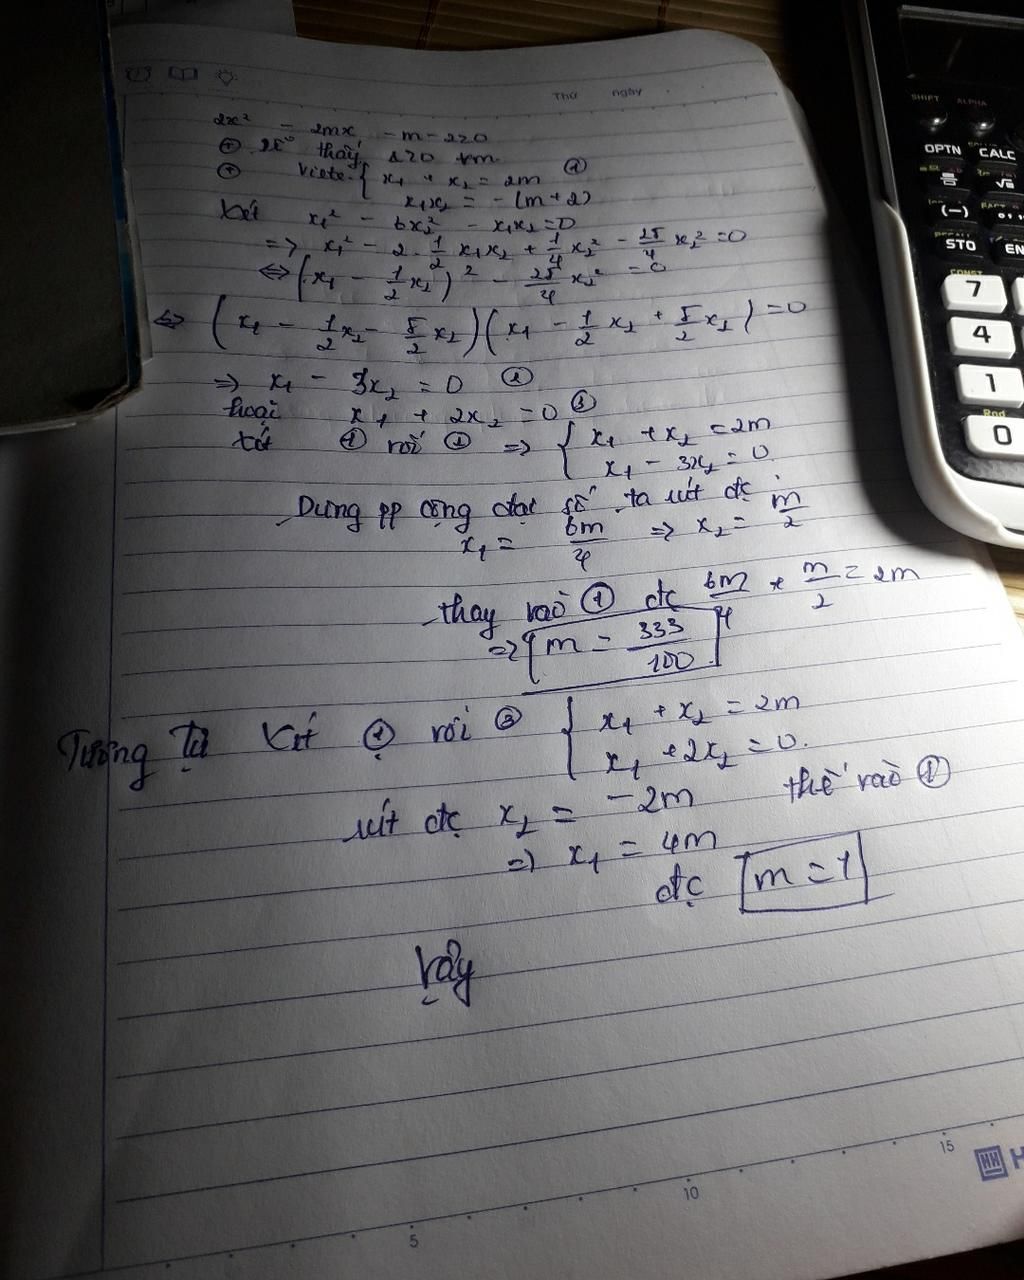 Thứ ngày
2x² - 2mx - m - 2 = 0
⊕ Dễ thấy Δ > 0 ∀m
⊕ Viete { x₁ + x₂ = 2m ①
x₁x₂ = -(m+2)
Xét x₁² - 6x₂² - x₁x₂ = 0
=> x₁² - 2 . 1/2 x₁x₂ + 1/4 x₂² - 25/4 x₂² = 0
⇔ (x₁ - 1/2 x₂)² - 25/4 x₂² = 0
⇔ (x₁ - 1/2 x₂ - 5/2 x₂)(x₁ - 1/2 x₂ + 5/2 x₂) = 0
=> x₁ - 3x₂ = 0 ②
hoặc x₁ + 2x₂ = 0 ③
Xét ① với ② => { x₁ + x₂ = 2m
x₁ - 3x₂ = 0
Dùng pp cộng đại số ta rút đc
x₁ = 6m/4 => x₂ = m/2
thay vào ① đc 6m/4 + m/2 = 2m
=> m = 333/100
Tương tự Xét ① với ③ { x₁ + x₂ = 2m
x₁ + 2x₂ = 0.
rút đc x₂ = -2m thế vào ①
=> x₁ = 4m
đc m = 1
Vậy
5 10 15
SHIFT ALPHA
OPTN CALC
(-)
STO EN
CONST
7
4
1
Rnd
0